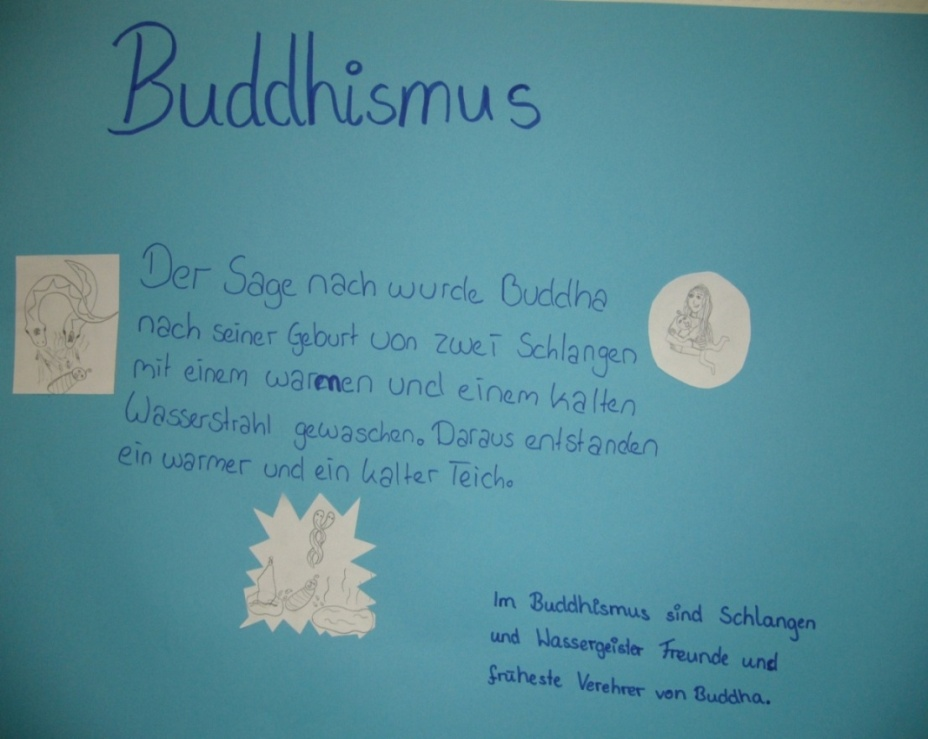 Buddhismus
Der Sage nach wurde Buddha
nach seiner Geburt von zwei Schlangen
mit einem warmen und einem kalten
Wasserstrahl gewaschen. Daraus entstanden
ein warmer und ein kalter Teich.
Im Buddhismus sind Schlangen
und Wassergeister Freunde und
früheste Verehrer von Buddha.